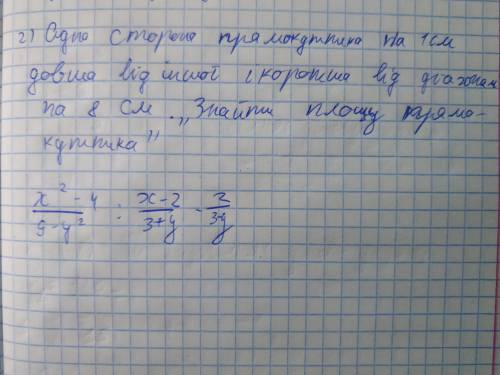 2) Одна сторона прямокутника на 1 см
довша від іншої і коротша від діагоналі
на 8 см. „Знайти площу прямо-
кутника”
x² - 4 / 9 - y² : x - 2 / 3 + y - 2 / 3 - y